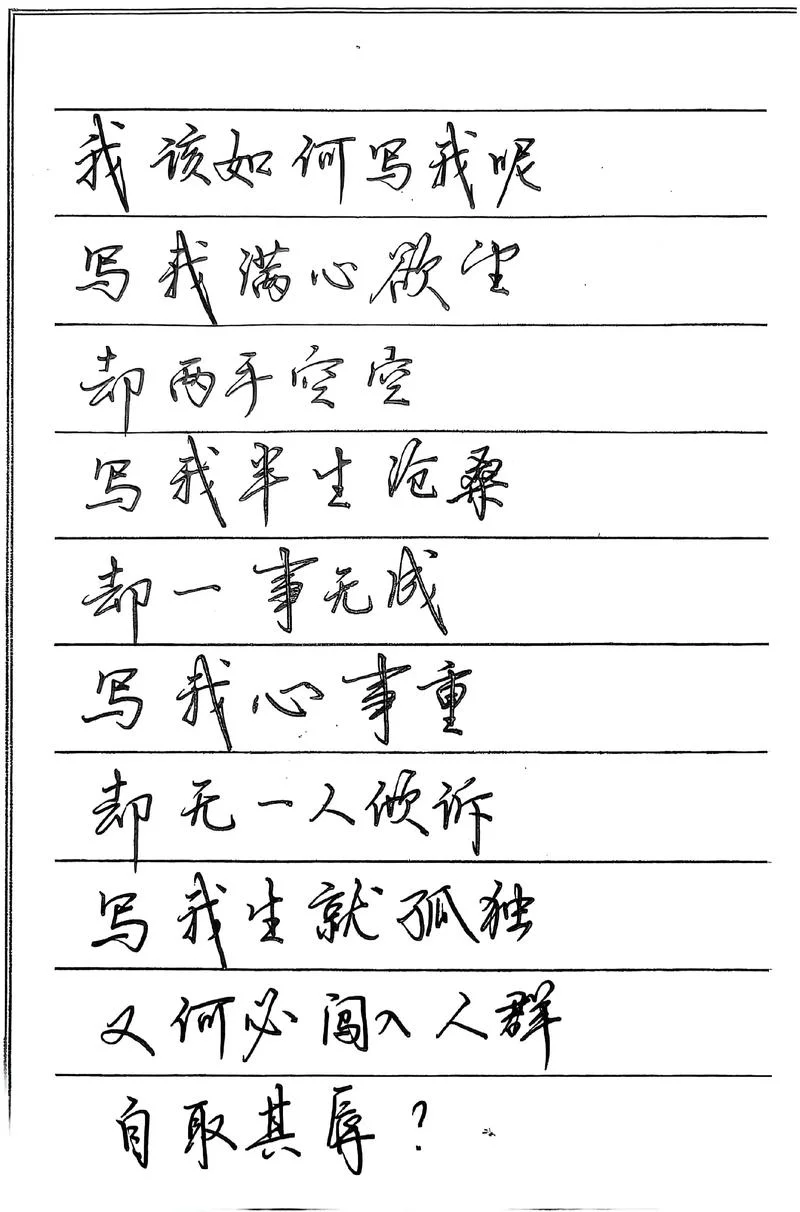 我该如何写我呢
写我满心欲望
却两手空空
写我半生沧桑
却一事无成
写我心事重
却无一人倾诉
写我生就孤独
又何必闯入人群
自取其辱？